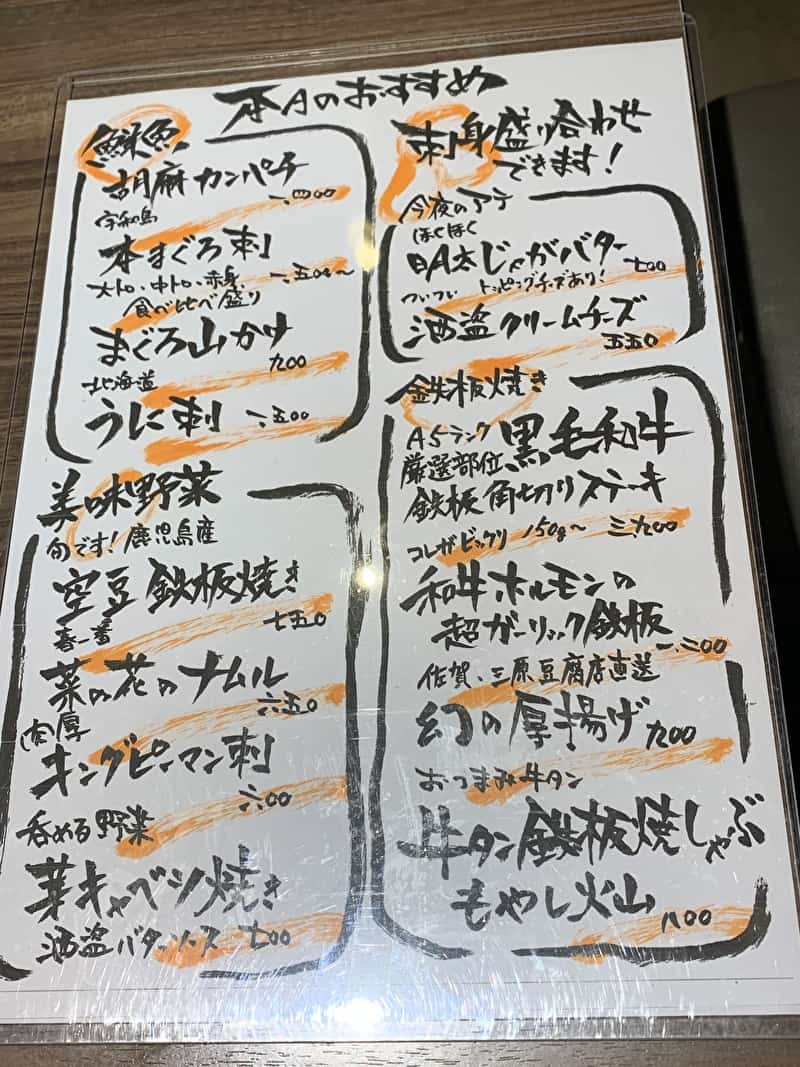 本日のおすすめ
鮮魚
胡麻カンパチ
一、四〇〇
宇和島
本まぐろ刺
一、五〇〇〜
大トロ、中トロ、赤身、
食べ比べ盛り
まぐろ山かけ
九〇〇
北海道
うに刺
一、五〇〇
美味野菜
旬です!鹿児島産
空豆鉄板焼き
七五〇
春一番
菜の花のナムル
六五〇
肉厚
キングピーマン刺
六〇〇
呑める野菜
芽キャベツ焼き
酒盗バターソース 七〇〇
刺身盛り合わせ
できます!
今夜のアテ
ほくほく
明太じゃがバター
七〇〇
トッピングチーズあり!
ついつい
酒盗クリームチーズ
五五〇
鉄板焼き
A5ランク
厳選部位
黒毛和牛
鉄板角切りステーキ
コレがビックリ 150g〜 三、九〇〇
和牛ホルモンの
超ガーリック鉄板
一、二〇〇
佐賀、三原豆腐店直送
幻の厚揚げ
九〇〇
おつまみ牛タン
牛タン鉄板焼しゃぶ
もやし火山
八〇〇